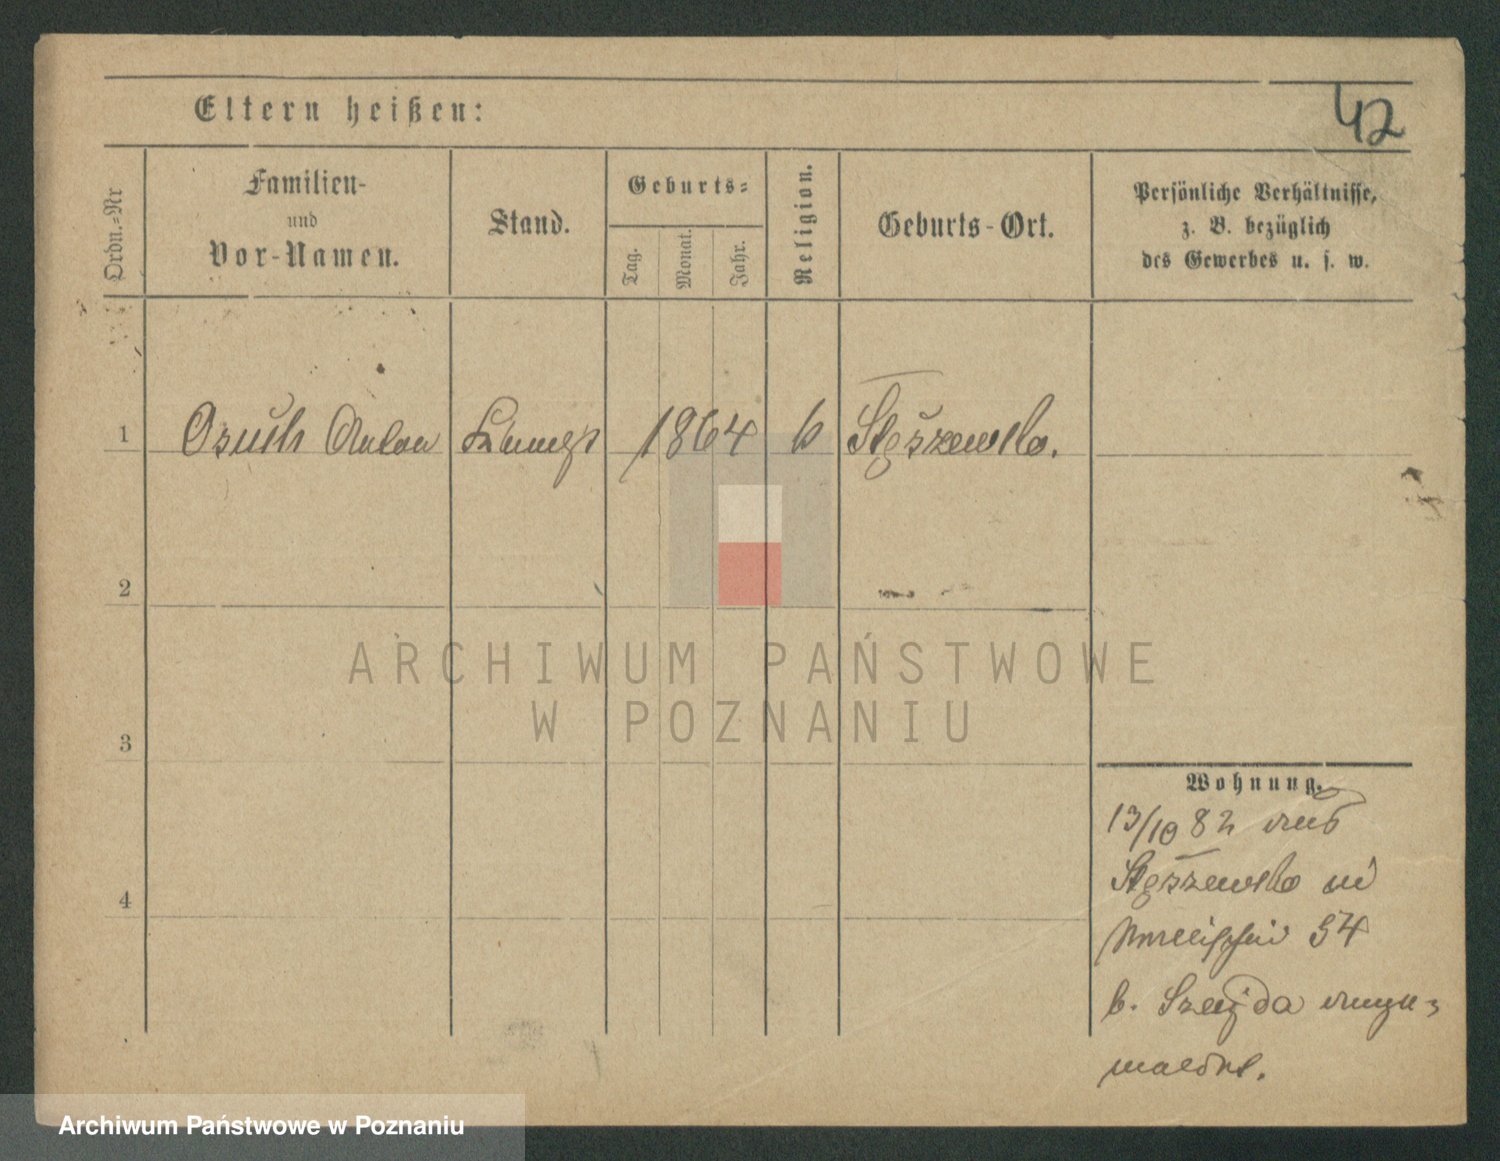 42
Eltern heißen:
Ordn.-Nr
Familien-
und
Vor-Namen.
Stand.
Geburts-
Tag.
Monat.
Jahr.
Religion.
Geburts-Ort.
Persönliche Verhältnisse,
z. B. bezüglich
des Gewerbes u. s. w.
1 Osuch Anton 1864 Stęszewko.
2
3
4
Wohnung.
13/10 82 aus
Stęszewko in
54
b. Szejda ange-
meldet.
ARCHIWUM PAŃSTWOWE
W POZNANIU
Archiwum Państwowe w Poznaniu